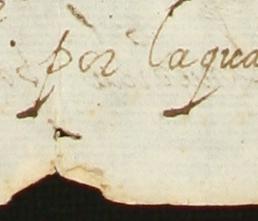 por laqua